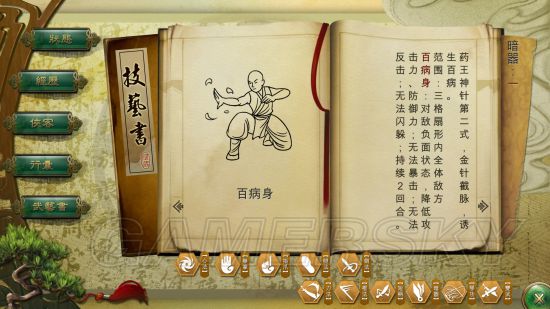 狀態
經歷
俠客
行囊
武藝書
技藝書
百病身
暗器：
药王神针第二式，金针截脉，诱
生百病。
范围：三格扇形内全体敌方
百病身：对敌负面状态，降低攻
击力、防御力；无法暴击；无法
反击；无法闪躲；持续2回合。
GAMERSKY